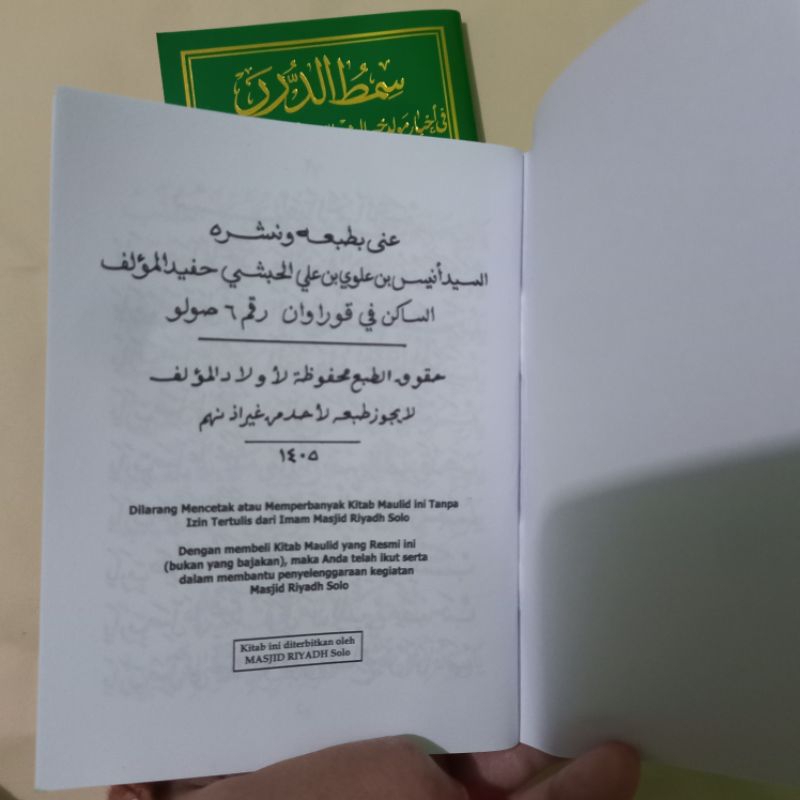 سمط الدرر
في أخبار مولد خير
عنى بطبعه ونشره
السيد أنيس بن علوي بن علي الحبشي حفيد المؤلف
الساكن في قوراوان رقم ٦ صولو
حقوق الطبع محفوظة لأولاد المؤلف
لا يجوز طبعه لأحد من غير اذنهم
١٤٠٥
Dilarang Mencetak atau Memperbanyak Kitab Maulid ini Tanpa
Izin Tertulis dari Imam Masjid Riyadh Solo
Dengan membeli Kitab Maulid yang Resmi ini
(bukan yang bajakan), maka Anda telah ikut serta
dalam membantu penyelenggaraan kegiatan
Masjid Riyadh Solo
Kitab ini diterbitkan oleh
MASJID RIYADH Solo